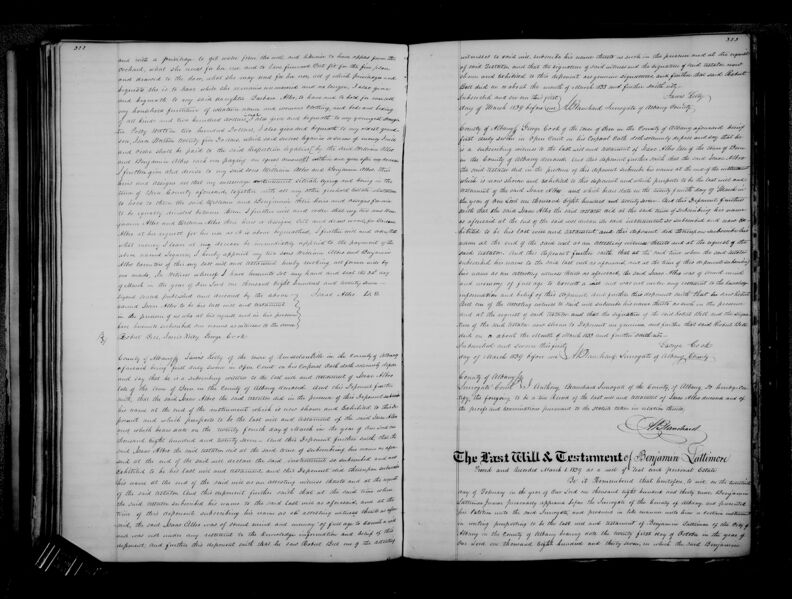 and with a priviledge to get water from the well and likewise to have apples from the
orchard, what she needs for her use and to have firewood Cut fit for the fire place
and drawed to the door, what she may need for her use all of which priviledges and
bequests she is to have while she remains unmarried and no longer, I also give
and bequeath to my said daughter Barbara Albro, to have and to hold for
my household furniture of whatever name and wearing clothing, and beds and bedding
of all kinds and two hundred dollars, I also give and bequeath to my youngest daughter
Polly two hundred Dollars, I also give and bequeath to my
son, Isaac Fifty five Dollars
and to be paid to the said respective legatees by the said William Albro
and Benjamin Albro each one paying an equal amount within one year after my decease
I further give and devise to my said sons William Albro and Benjamin Albro, their
heirs and assigns all that my
town of Bern County aforesaid together with all my other freehold estate whatsoever
to have to them the said William and Benjamin their heirs and assigns forever
to be equally divided between them I further will and order that my two sons Benjamin
Albro and William Albro
Albro at her request for her use as is above bequeathed, I further will and order that
what money I leave at my decease be immediately applied to the payment of the
above named legacies, I hereby appoint my two sons William Albro and Benjamin
Albro Executors of this my last will and testament hereby revoking all former wills by
me made, In Witness whereof I have hereunto set my hand and seal the 24th day
of March in the year of Our Lord one thousand Eight hundred and twenty seven
Signed sealed published and declared by the above
named Isaac Albro to be his last will and testament
in the presence of us who at his request and in his presence
have hereunto subscribed our names as witnesses to the same
Isaac Albro L.S.
Robert Bell, Lewis Kelly, George Cook
County of Albany ss Lewis Kelly of the town of in the County of Albany
aforesaid being first duly sworn in Open Court on his Corporal Oath doth solemnly depose
and say that he is a subscribing witness to the last will and testament of Isaac Albro
late of the town of Bern in the County of Albany deceased And this Deponent further
saith, that the said Isaac Albro the said testator did in the presence of this deponent subscribe
his name at the end of the instrument which is now shown and Exhibited to this
deponent and which purports to be the last will and testament of the said Isaac Albro
and which bears date on the twenty fourth day of March in the year of Our Lord one
thousand Eight hundred and twenty seven And this Deponent further saith, that the
said Isaac Albro the said testator did at the said time of subscribing his name as aforesaid
at the end of the said will declare the said instrument so subscribed and now
Exhibited to be his last will and testament, and this deponent did thereupon subscribe
his name at the end of the said will as an attesting witness thereto and at the request
of the said testator And this deponent further saith that at the said time when the
said testator subscribed his name to the said last will as aforesaid, and at the
time of this deponents subscribing his name as an attesting witness thereto as aforesaid,
the said Isaac Albro was of sound mind and memory of full age to Execute a will
and was not under any restraint to the knowledge information and belief of this
deponent, And further this deponent saith that he saw Robert Bell one of the attesting
333
witnesses to said will, subscribe his name thereto as such in the presence and at the request
of said Testator and that the signature of said witness and the signature of said testator now
shown and Exhibited to this deponent are genuine signatures and further that said Robert
Bell died on or about the month of March 1833 and further saith not
Subscribed and sworn this first
Lewis Kelly
day of March 1839 before me A Blanchard Surrogate of Albany County
County of Albany ss George Cook of the town of Bern in the County of Albany aforesaid being
first duly sworn in Open Court on his Corporal Oath doth solemnly depose and say that he
is a subscribing witness to the last will and testament of Isaac Albro late of the town of Bern
in the County of Albany deceased And this deponent further saith that the said Isaac Albro
the said testator did in the presence of this deponent subscribe his name at the end of the instrument
which is now shown and Exhibited to this deponent and which purports to be the last will and
testament of the said Isaac Albro and which bears date on the twenty fourth day of March in
the year of Our Lord One thousand Eight hundred and twenty seven And this Deponent further
saith that the said Isaac Albro the said testator did at the said time of subscribing his name
as aforesaid at the end of the said will declare the said instrument so subscribed and now
Exhibited to be his last will and testament, and this deponent did thereupon subscribe his
name at the end of the said will as an attesting witness thereto and at the request of the
said testator And this deponent further saith, that at the said time when the said testator
subscribed his name to the said last will as aforesaid, and at the time of this deponents subscribing
his name as an attesting witness thereto as aforesaid, the said Isaac Albro was of sound mind
and memory of full age to Execute a will and was not under any restraint to the knowledge
information and belief of this Deponent And further this deponent saith that he saw Robert
Bell one of the attesting witnesses to said will subscribe his name thereto as such in the presence
and at the request of said Testator, and that the signature of the said Robert Bell and the signature
of the said testator now shown to Deponent are genuine and further that said Robert Bell
died on or about the month of March 1833 and further saith not
Subscribed and sworn this first
George Cook
day of March 1839 before me A Blanchard Surrogate of Albany County
County of Albany ss
Surrogate Court I Anthony Blanchard Surrogate of the County of Albany Do hereby certify
the foregoing to be a true Record of the last will and testament of Isaac Albro deceased and of
the proofs and examinations pursuant to the statute taken in relation thereto
A Blanchard
The Last Will & Testament of Benjamin Lattimore
Proved and Recorded March 1 1839 as a will of real and personal Estate
Be it Remembered that heretofore, to wit, on the
day of February in the year of Our Lord one thousand Eight hundred and thirty nine Benjamin
Lattimore Junior personally appeared before the Surrogate of the County of Albany, and presented
his Petition unto the said Surrogate, and produced in like manner unto him a certain instrument
in writing purporting to be the last will and testament of Benjamin Lattimore of the City of
Albany in the County of Albany bearing date the twenty first day of October in the year of
Our Lord one thousand Eight hundred and thirty seven, in which the said Benjamin